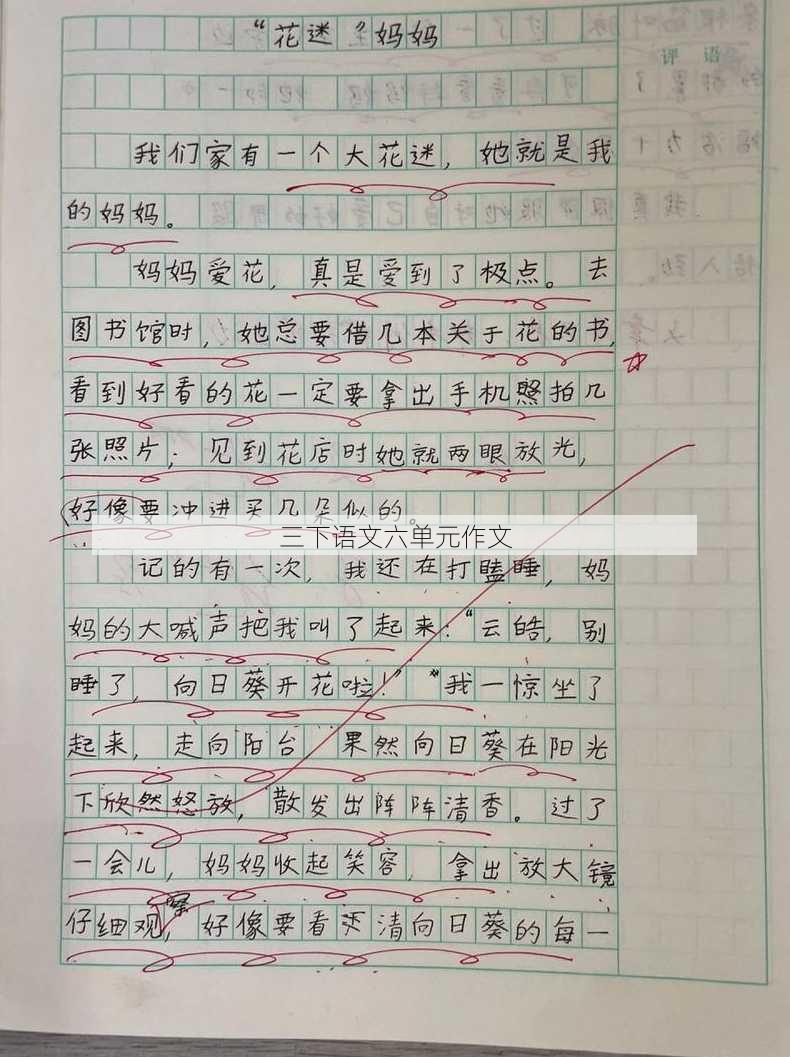 “花迷”妈妈
评语
我们家有一个大花迷，她就是我
的妈妈。
妈妈爱花，真是爱到了极点。去
图书馆时，她总要借几本关于花的书，
看到好看的花一定要拿出手机照拍几
张照片；见到花店时她就两眼放光，
好像要冲进买几朵似的。
三下语文六单元作文
记的有一次，我还在打瞌睡，妈
妈的大喊声把我叫了起来：“云皓，别
睡了，向日葵开花啦！”“我一惊坐了
起来，走向阳台，果然向日葵在阳光
下欣然怒放，散发出阵阵清香。过了
一会儿，妈妈收起笑容，拿出放大镜
仔细观察，好像要看清向日葵的每一